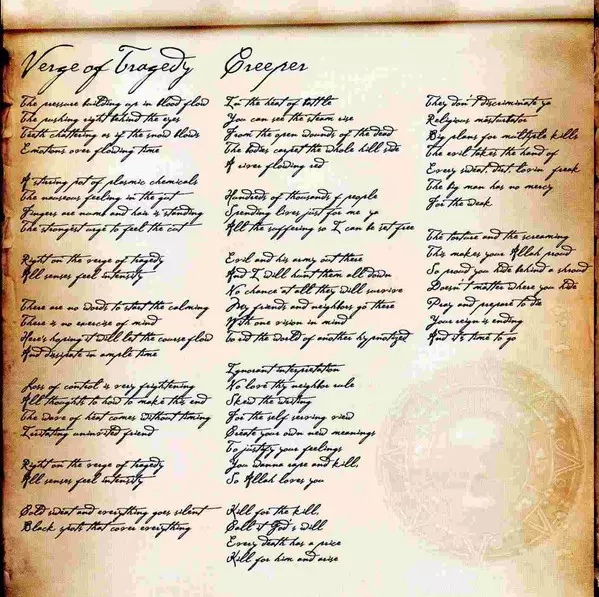 Verge of Tragedy
The pressure building up in blood flow
The pushing right behind the eyes
Teeth chattering as if the snow blows
Emotions over flowing time
A stering pot of plasmic chemicals
The nauseous feeling in the gut
Fingers are numb and hair is standing
The strongest urge to feel the cut
Right on the verge of tragedy
All senses feel intensity
There are no words to start the calming
There is no exercise of mind
Here's hoping it will let the course flow
And dissipate in ample time
Loss of control is very frightening
All thoughts to how to make this end
The wave of heat comes without timing
Irritating uninvited friend
Right on the verge of tragedy
All senses feel intensity
Cold sweat and everything goes silent
Black spots that cover everything
Creeper
In the heat of battle
You can see the steam rise
From the open wounds of the dead
The bodies carpet the whole hill side
A river flowing red
Hundreds of thousands f people
Spending lives just for me yo
All the suffering so I can be set free
Evil and his army out there
And I will hunt them all down
No chance at all they will survive
My friends and neighbors go there
With one vision in mind
To rid the world of another hypnotized
Ignorant interpretation
No love thy neighbor rule
Skew the writing
For the self serving view
Create your own new meanings
To justify your feelings
You wanna rape and kill.
So Allah loves you
Kill for the kill.
Call it God's will
Every death has a price
Kill for him and arise
They don't discriminate yo
Religious masturbator
Big plans for multiple kills
The evil takes the hand of
Every sweat, dest, lovin' freak
The big man has no mercy
For the weak
The torture and the screaming
This makes your Allah proud
So proud you hide behind a shroud
Doesn't matter where you hide
Pray and prepare to die
Your reign is ending
And it's time to go